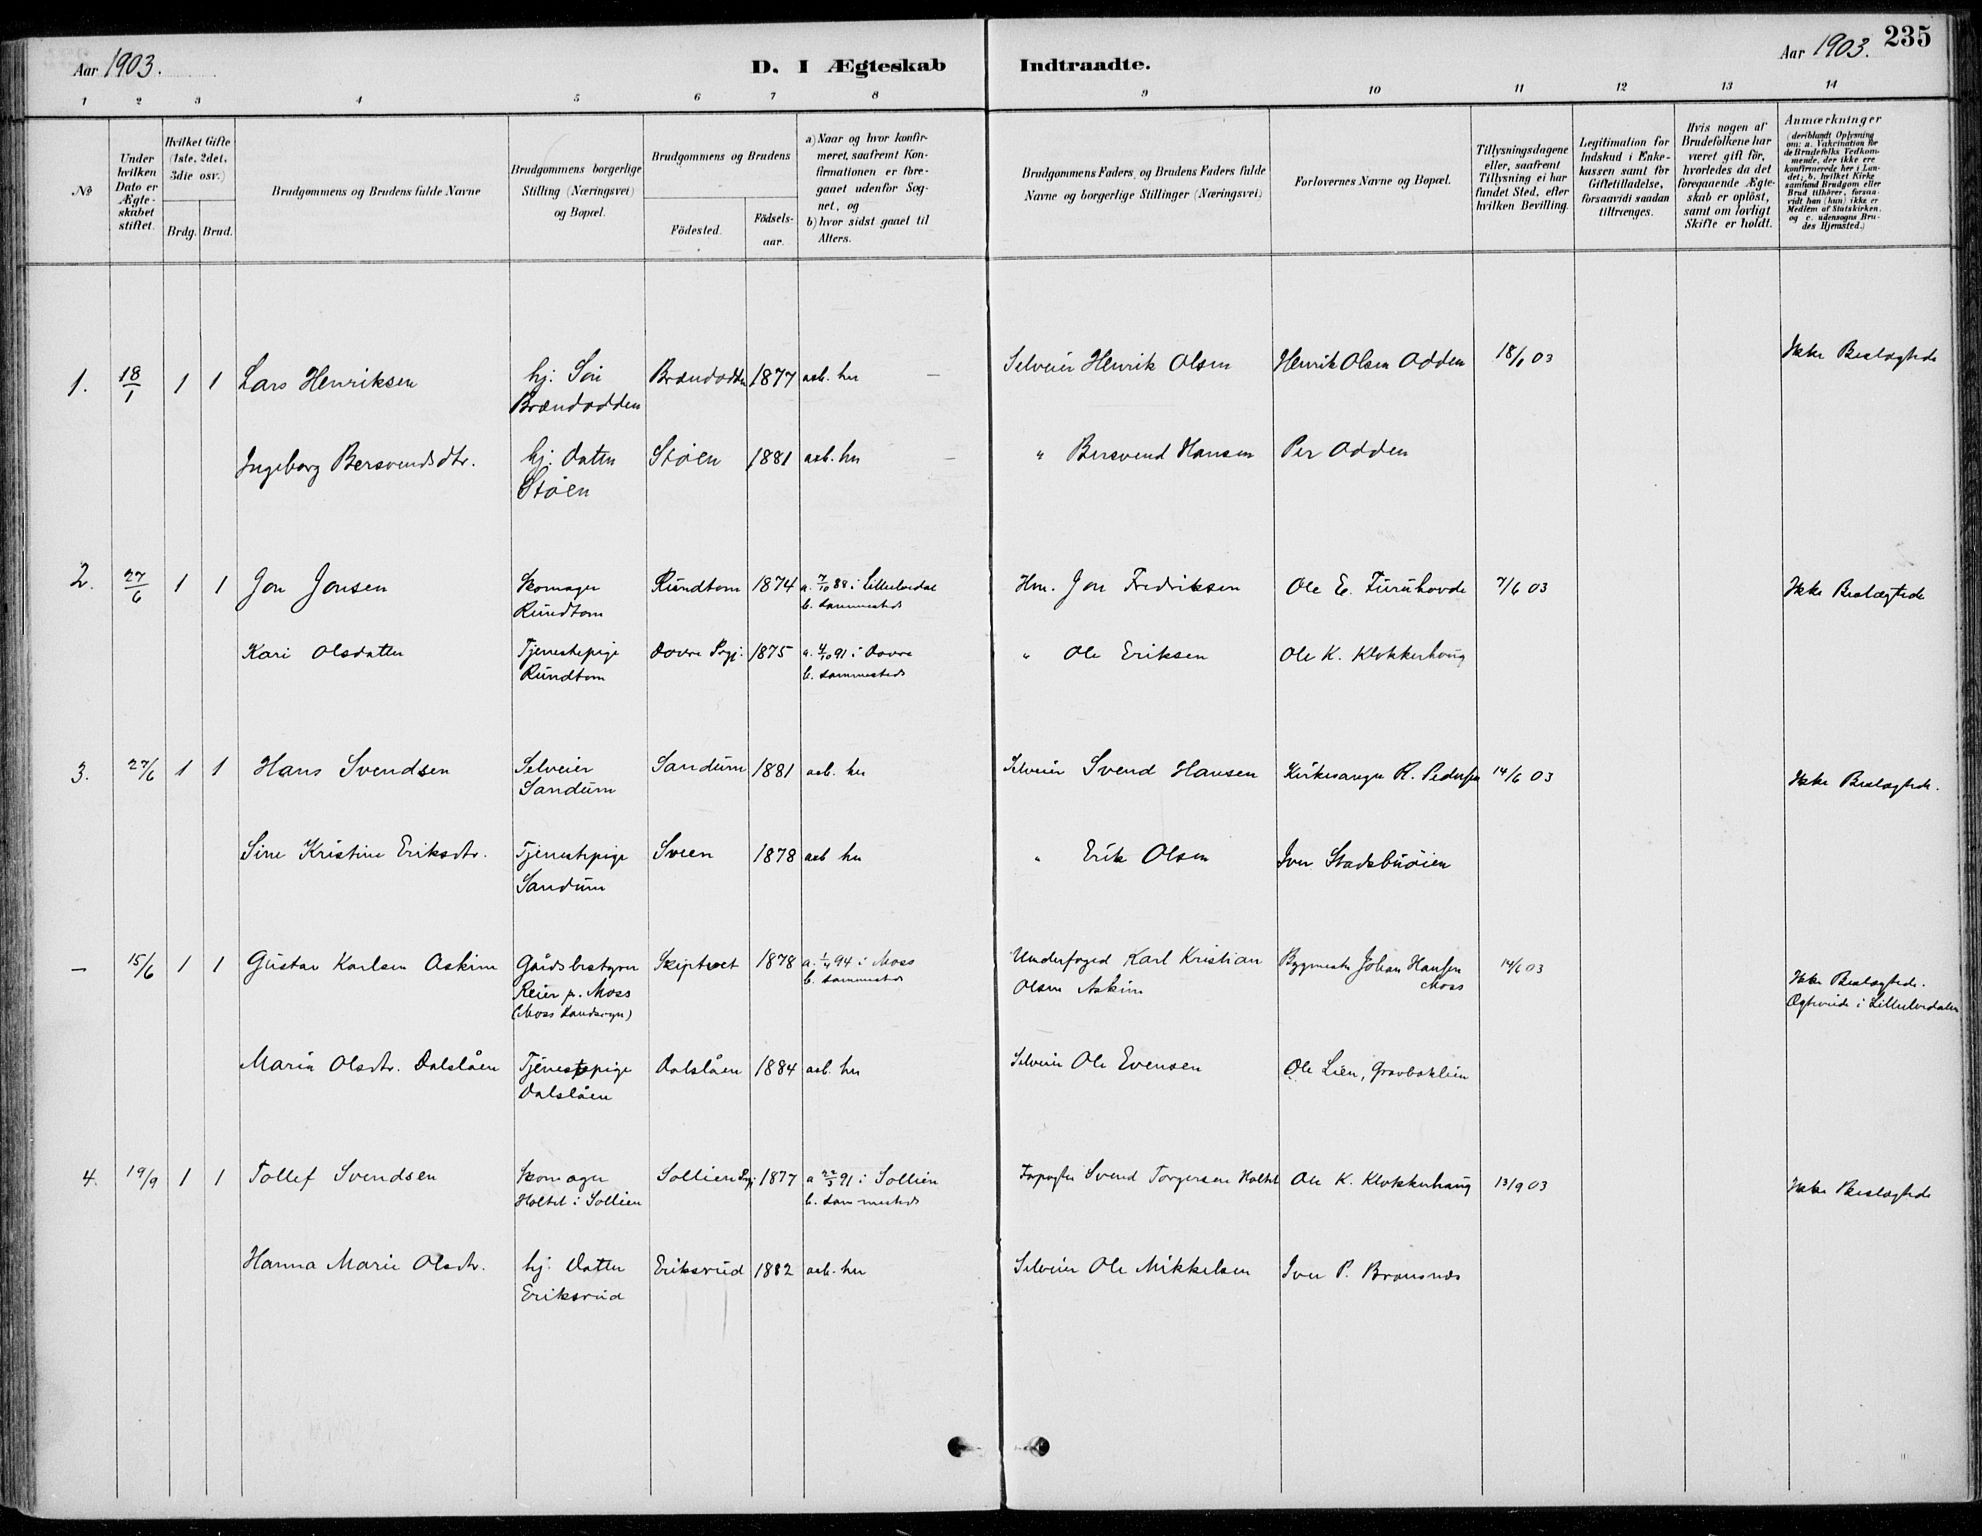 Aar 1903.
D. I Ægteskab Indtraadte.
Aar 1903. 235
1 2 3 4 5 6 7 8 9 10 11 12 13 14
№
Under hvilken Dato er Ægteskabet stiftet.
Hvilket Gifte (1ste, 2det, 3die osv.)
Brdg. Brud.
Brudgommens og Brudens fulde Navne
Brudgommens borgerlige Stilling (Næringsvei) og Bopæl.
Brudgommens og Brudens
Födested. Födsels-aar.
a) Naar og hvor konfirmeret, saafremt Konfirmationen er foregaaet udenfor Sognet, og
b) hvor sidst gaaet til Alters.
Brudgommens Faders, og Brudens Faders fulde Navne og borgerlige Stillinger (Næringsvei)
Forlovernes Navne og Bopæl.
Tillysningsdagene eller, saafremt Tillysning ei har fundet Sted, efter hvilken Bevilling.
Legitimation for Indskud i Enkekassen samt for Giftetilladelse, forsaavidt saadan tiltrænges.
Hvis nogen af Brudefolkene har været gift för, hvorledes da det foregaaende Ægteskab er oplöst, samt om lovligt Skifte er holdt.
Anmærkninger
(deriblandt Oplysning om: a. Vakcination for de Brudefolks Vedkommende, der ikke ere konfirmerede her i Landet; b. hvilket Kirkesamfund Brudgom eller Brud tilhører, forsaavidt han (hun) ikke er Medlem af Statskirken, og c. udensogns Brudes Hjemsted.)
1. 18/1 1 1 Lars Henriksen hj. Søn Brændodden 1877 aab. her Selveier Henrik Olsen Henrik Olsen Odden 18/1 03 Ikke Beslægtede
Brændodden
Ingeborg Bersvendsdtr. hj. Datter Støen 1881 aab. her " Bersvend Hansen Per Odden
Støen
2. 27/6 1 1 Jon Jonsen Skomager Rundtom 1874 a. 7/10 88 i Lilleelvedal Hm. Jon Fredriksen Ole E. Furuhovde 7/6 03 Ikke Beslægtede
Rundtom b. sammesteds
Kari Olsdatter Tjenestepige Dovre Prgj. 1875 a. 4/10 91 i Dovre " Ole Eriksen Ole K. Klokkerhaug
Rundtom b. sammesteds
3. 27/6 1 1 Hans Svendsen Selveier Sandum 1881 aab. her Selveier Svend Hansen Kirkesanger R. Pedersen 14/6 03 Ikke Beslægtede.
Sandum
Sine Kristine Eriksdtr. Tjenestepige Sveen 1878 aab her " Erik Olsen Iver Stadsbuøien
Sandum
– 15/6 1 1 Gustav Karlsen Askim Gaardsbestyrer Skiptvet 1878 a. 1/4 94 i Moss Underfoged Karl Kristian Bygmester Johan Hansen 14/6 03 Ikke Beslægtede.
Reier p. Moss b. sammesteds Olsen Askim Moss Ægteviede i Lilleelvedalen
(Moss Landsogn)
Maria Olsdtr. Dalslåen Tjenestepige Dalslåen 1884 aab. her Selveier Ole Evensen Ole Lien, Gravbaklien
Dalslåen
4. 19/9 1 1 Tollef Svendsen Skomager Sollien Prgj. 1877 a 22/3 91 i Sollien Svend Torgersen Holtet Ole K. Klokkerhaug 13/9 03 Ikke Beslægtede
Holtet i Sollien b. sammesteds
Hanna Marie Olsdtr. hj. Datter Eriksrud 1882 aab. her Selveier Ole Mikkelsen Iver P. Bransnes
Eriksrud